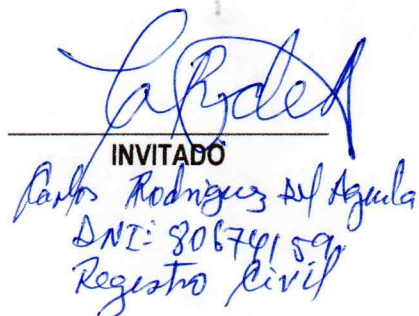 INVITADO
Carlos Rodriguez del Aguila
DNI: 80674159
Registro Civil